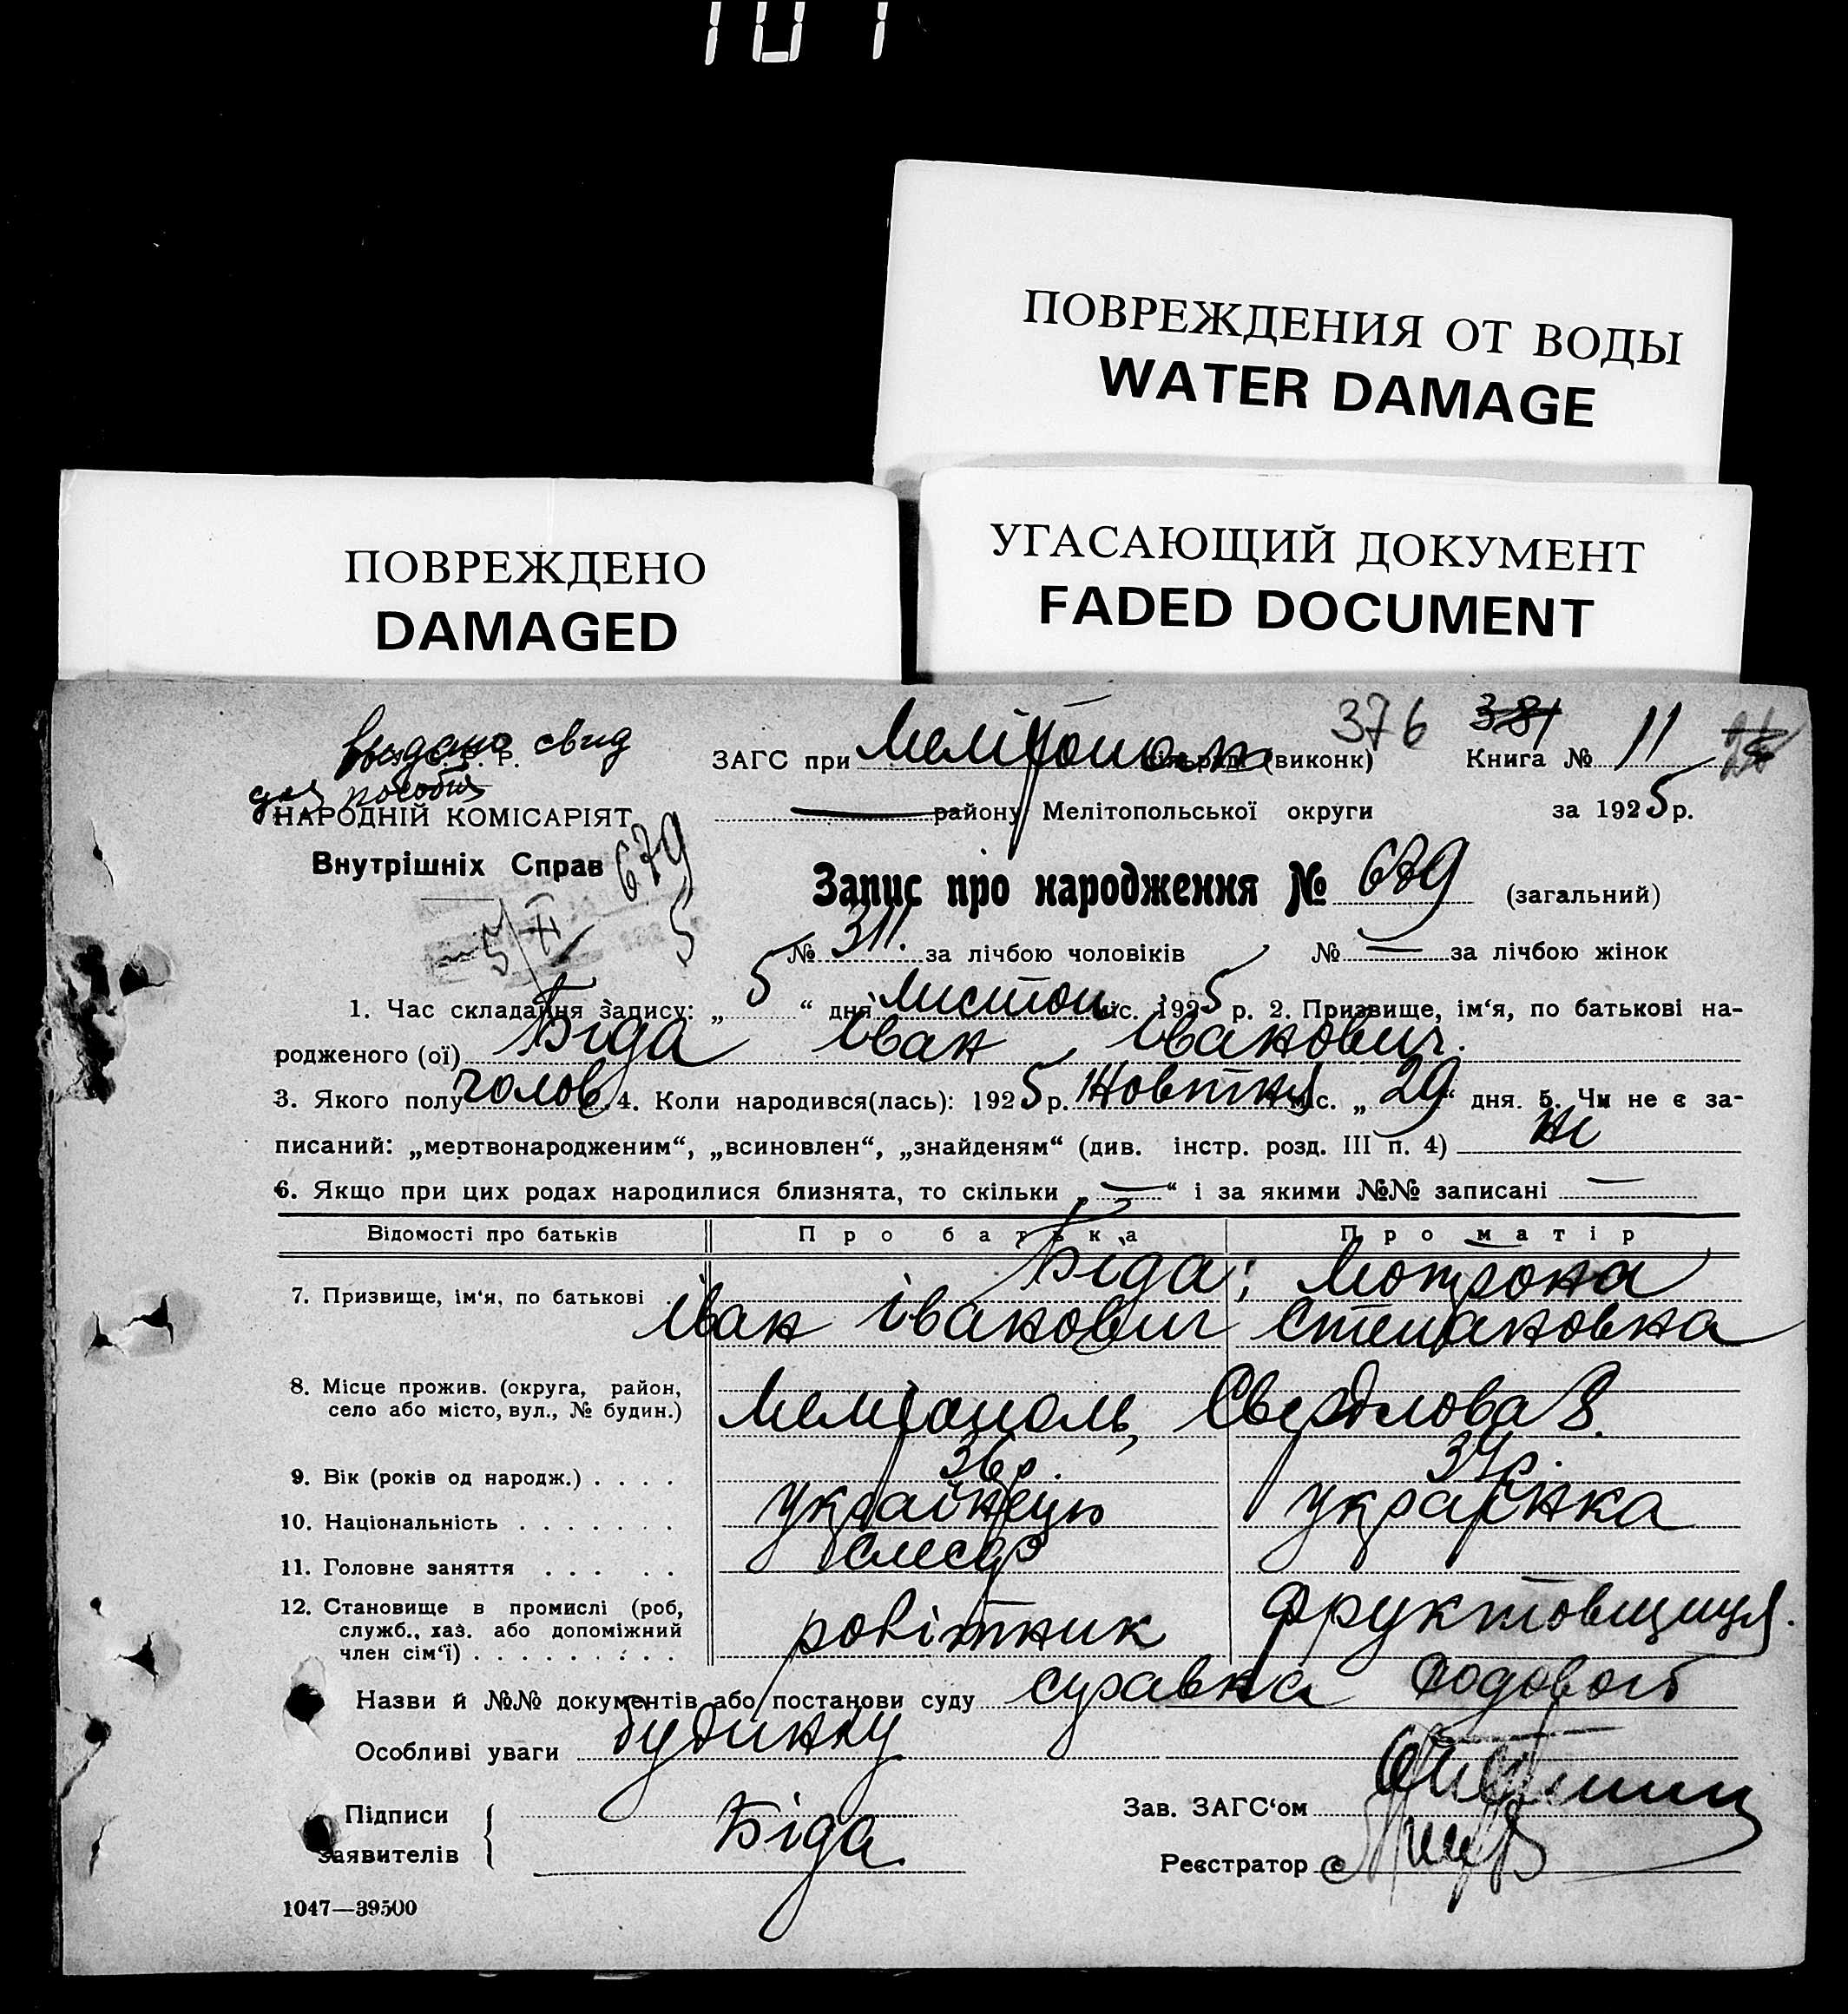 101
ПОВРЕЖДЕНИЯ ОТ ВОДЫ
WATER DAMAGE
ПОВРЕЖДЕНО
DAMAGED
УГАСАЮЩИЙ ДОКУМЕНТ
FADED DOCUMENT
выдано свид
для пособия
НАРОДНІЙ КОМІСАРІЯТ
Внутрішніх Справ
679
5/XI 5
376 381
ЗАГС при Мелітополь (виконк) Книга № 11
району Мелітопольської округи за 1925 р.
Запис про народження № 679 (загальний)
№ 311. за лічбою чоловіків № — за лічбою жінок
1. Час складання запису: „ 5 “ дня листоп міс. 1925 р. 2. Призвище, ім‘я, по батькові на-
родженого (ої) Біда Іван Іванович.
3. Якого полу чолов. 4. Коли народився(лась): 1925 р. Жовтня міс. „ 29 “ дня. 5. Чи не є за-
писаний: „мертвонародженим“, „всиновлен“, „знайденям“ (див. інстр. розд. III п. 4) ні
6. Якщо при цих родах народилися близнята, то скільки „ — “ і за якими №№ записані —
Відомості про батьків Про батька Про матір
7. Призвище, ім‘я, по батькові Біда; Мотрона
Іван Іванович Степановна
8. Місце прожив. (округа, район,
село або місто, вул., № будин.) Мелітополь, Свердлова 8.
9. Вік (років од народж.) . . . . 36 р. 34 р.
10. Національність . . . . . . . українець українка
11. Головне заняття . . . . . слесар
12. Становище в промислі (роб,
служб., хаз. або допоміжний
член сім‘ї) . . . . . . . . . робітник фруктовщиця.
Назви й №№ документів або постанови суду справка родового
Особливі уваги будинку
Підписи
заявителів { Біда
Зав. ЗАГС‘ом
Реєстратор
1047—39500